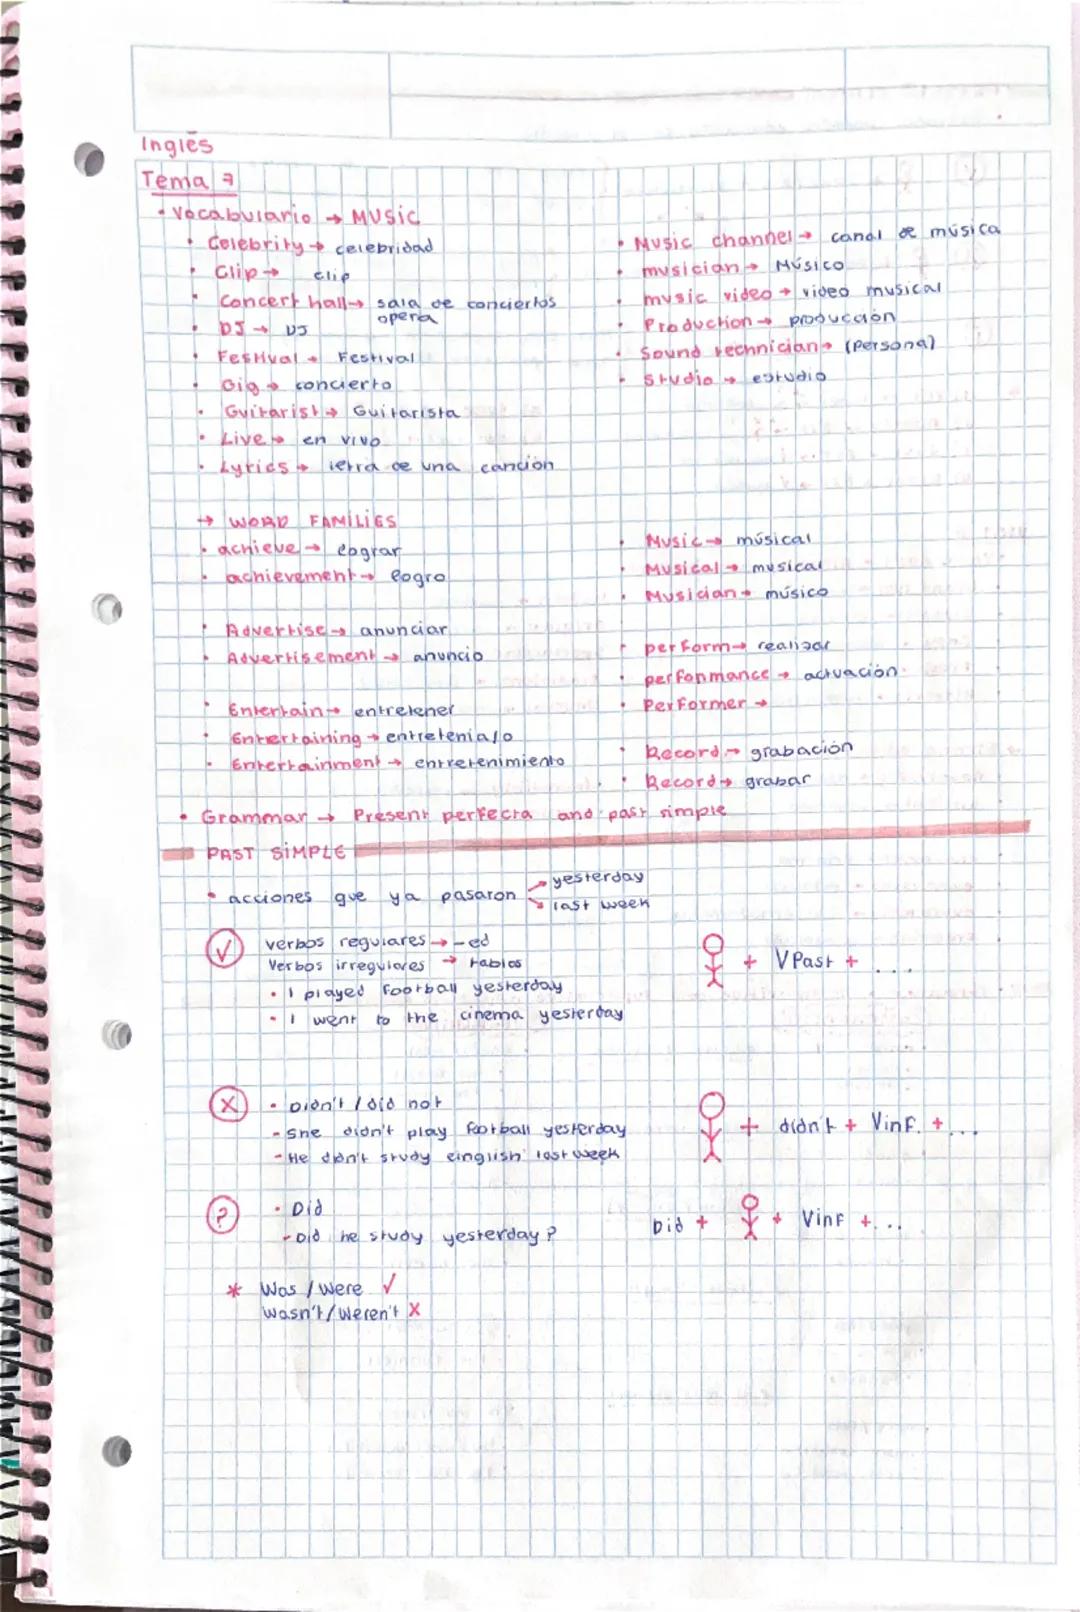 Inglés
Tema 7
• Vocabulario → MUSIC
• Celebrity → celebridad
• Clip → clip
• Concert hall → sala de conciertos
opera
• DJ → DJ
• Festival → Festival
• Gig → concierto
• Guitarist → Guitarista
• Live → en vivo
• Lyrics → letra de una canción
• Music channel → canal de música
• musician → Músico
• music video → video musical
• Production → producción
• Sound technician → (persona)
• Studio → estudio
→ WORD FAMILIES
• achieve → lograr
• achievement → logro
• Advertise → anunciar
• Advertisement → anuncio
• Entertain → entretener
• Entertaining → entretenia/o
• Entertainment → entretenimiento
• Music → músical
• Musical → musical
• Musician → músico
• perform → realizar
• performance → actuación
• Performer →
• Record → grabación
• Record → grabar
• Grammar → Present perfecta and past simple
PAST SIMPLE
• acciones que ya pasaron → yesterday
→ last week
✓ verbos regulares → -ed
Verbos irregulares → tablas
• I played football yesterday
• I went to the cinema yesterday
+ VPast + ...
X • Didn't / did not
- She didn't play football yesterday
- He didn't study einglish last week
+ didn't + Vinf. + ...
? • Did
- Did he study yesterday?
Did + + Vinf + ...
* Was / were ✓
Wasn't / Weren't X